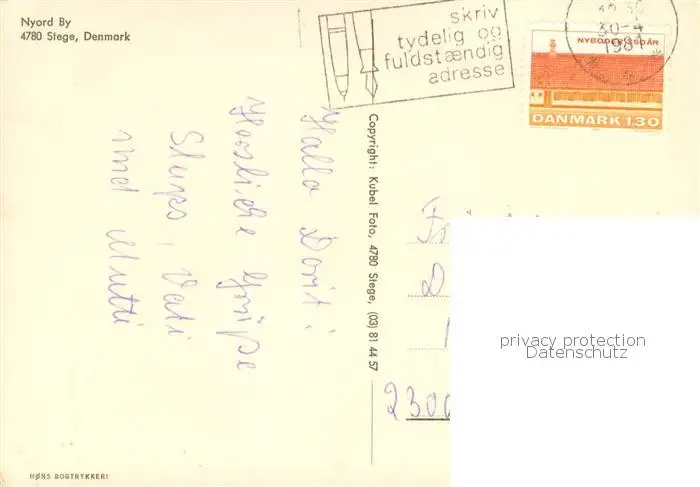 Nyord By
4780 Stege, Denmark
skriv
tydelig og
fuldstændig
adresse
30-4
1981
NYBODER 350 ÅR
DANMARK 1.30
Hallo Dorit!
Herzliche Grüße
Stups, Vati
und Mutti
Copyright: Kubel Foto, 4780 Stege, (03) 81 44 57
Fr
D
2300
privacy protection
Datenschutz
HØNS BOGTRYKKERI